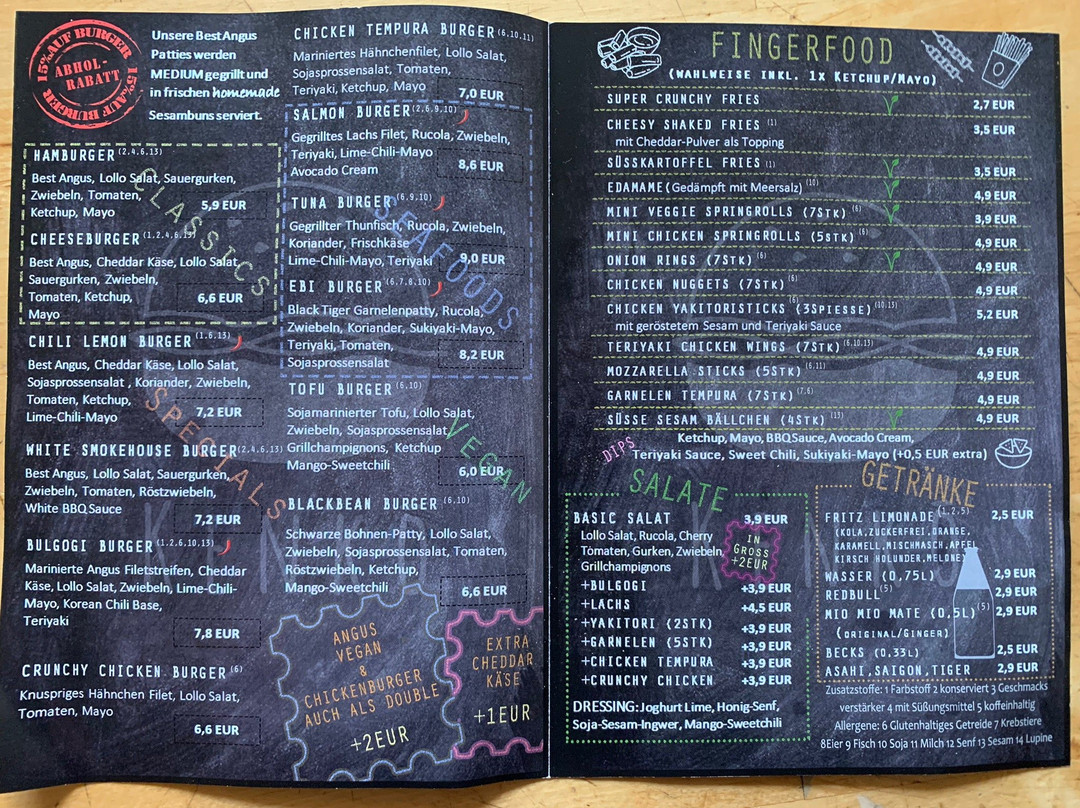 15% AUF BURGER
ABHOL-
RABATT
15% AUF BURGER
Unsere Best Angus
Patties werden
MEDIUM gegrillt und
in frischen homemade
Sesambuns serviert.
CLASSICS
HAMBURGER (2,4,6,13)
Best Angus, Lollo Salat, Sauergurken,
Zwiebeln, Tomaten,
Ketchup, Mayo
5,9 EUR
CHEESEBURGER (1,2,4,6,13)
Best Angus, Cheddar Käse, Lollo Salat,
Sauergurken, Zwiebeln,
Tomaten, Ketchup,
Mayo
6,6 EUR
SPECIALS
CHILI LEMON BURGER (1,6,13)
Best Angus, Cheddar Käse, Lollo Salat,
Sojasprossensalat , Koriander, Zwiebeln,
Tomaten, Ketchup,
Lime-Chili-Mayo
7,2 EUR
WHITE SMOKEHOUSE BURGER (2,4,6,13)
Best Angus, Lollo Salat, Sauergurken,
Zwiebeln, Tomaten, Röstzwiebeln,
White BBQ Sauce
7,2 EUR
BULGOGI BURGER (1,2,6,10,13)
Marinierte Angus Filetstreifen, Cheddar
Käse, Lollo Salat, Zwiebeln, Lime-Chili-
Mayo, Korean Chili Base,
Teriyaki
7,8 EUR
CRUNCHY CHICKEN BURGER (6)
Knuspriges Hähnchen Filet, Lollo Salat,
Tomaten, Mayo
6,6 EUR
CHICKEN TEMPURA BURGER (6,10,11)
Mariniertes Hähnchenfilet, Lollo Salat,
Sojasprossensalat, Tomaten,
Teriyaki, Ketchup, Mayo
7,0 EUR
SEAFOODS
SALMON BURGER (2,6,9,10)
Gegrilltes Lachs Filet, Rucola, Zwiebeln,
Teriyaki, Lime-Chili-Mayo
Avocado Cream
8,6 EUR
TUNA BURGER (6,9,10)
Gegrillter Thunfisch, Rucola, Zwiebeln,
Koriander, Frischkäse
Lime-Chili-Mayo, Teriyaki
9,0 EUR
EBI BURGER (6,7,8,10)
Black Tiger Garnelenpatty, Rucola,
Zwiebeln, Koriander, Sukiyaki-Mayo,
Teriyaki, Tomaten,
Sojasprossensalat
8,2 EUR
VEGAN
TOFU BURGER (6,10)
Sojamarinierter Tofu, Lollo Salat,
Zwiebeln, Sojasprossensalat
Grillchampignons, Ketchup
Mango-Sweetchili
6,0 EUR
BLACKBEAN BURGER (6,10)
Schwarze Bohnen-Patty, Lollo Salat,
Zwiebeln, Sojasprossensalat, Tomaten,
Röstzwiebeln, Ketchup,
Mango-Sweetchili
6,6 EUR
ANGUS
VEGAN
&
CHICKENBURGER
AUCH ALS DOUBLE
+2EUR
EXTRA
CHEDDAR
KÄSE
+1EUR
FINGERFOOD
(WAHLWEISE INKL. 1X KETCHUP/MAYO)
SUPER CRUNCHY FRIES 2,7 EUR
CHEESY SHAKED FRIES (1) 3,5 EUR
mit Cheddar-Pulver als Topping
SÜSSKARTOFFEL FRIES (1) 3,5 EUR
EDAMAME (Gedämpft mit Meersalz) (10) 4,9 EUR
MINI VEGGIE SPRINGROLLS (7STK) (6) 3,9 EUR
MINI CHICKEN SPRINGROLLS (5STK) (6) 4,9 EUR
ONION RINGS (7STK) (6) 4,9 EUR
CHICKEN NUGGETS (7STK) (6) 4,9 EUR
CHICKEN YAKITORISTICKS (3SPIESSE) (6) (10,15) 5,2 EUR
mit geröstetem Sesam und Teriyaki Sauce
TERIYAKI CHICKEN WINGS (7STK) (6,10,13) 4,9 EUR
MOZZARELLA STICKS (5STK) (6,11) 4,9 EUR
GARNELEN TEMPURA (7STK) (7,6) 4,9 EUR
SÜSSE SESAM BÄLLCHEN (4STK) (13) 4,9 EUR
DIPS
Ketchup, Mayo, BBQ Sauce, Avocado Cream,
Teriyaki Sauce, Sweet Chili, Sukiyaki-Mayo (+0,5 EUR extra)
SALATE
BASIC SALAT 3,9 EUR
Lollo Salat, Rucola, Cherry
Tomaten, Gurken, Zwiebeln
Grillchampignons
IN
GROSS
+2EUR
+BULGOGI +3,9 EUR
+LACHS +4,5 EUR
+YAKITORI (2STK) +3,9 EUR
+GARNELEN (5STK) +3,9 EUR
+CHICKEN TEMPURA +3,9 EUR
+CRUNCHY CHICKEN +3,9 EUR
DRESSING: Joghurt Lime, Honig-Senf,
Soja-Sesam-Ingwer, Mango-Sweetchili
GETRÄNKE
FRITZ LIMONADE (1,2,5) 2,5 EUR
(KOLA,ZUCKERFREI,ORANGE,
KARAMELL,MISCHMASCH,APFEL
KIRSCH HOLUNDER,MELONE)
WASSER (0,75L) 2,9 EUR
REDBULL (5) 2,9 EUR
MIO MIO MATE (0,5L) (5) 2,9 EUR
(ORIGINAL/GINGER)
BECKS (0,33L) 2,5 EUR
ASAHI,SAIGON,TIGER 2,9 EUR
Zusatzstoffe: 1 Farbstoff 2 konserviert 3 Geschmacks
verstärker 4 mit Süßungsmittel 5 koffeinhaltig
Allergene: 6 Glutenhaltiges Getreide 7 Krebstiere
8Eier 9 Fisch 10 Soja 11 Milch 12 Senf 13 Sesam 14 Lupine